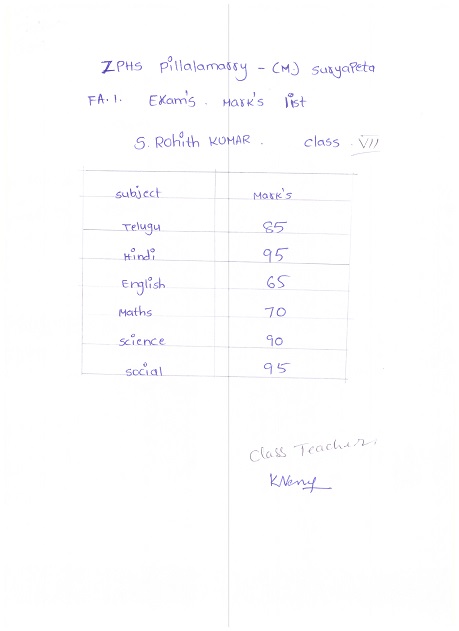 ZPHS Pillalamarry - (M) Suryapeta
FA.1. Exam's. Mark's list
S. Rohith KUMAR. class VII
subject Mark's
Telugu 85
Hindi 95
English 65
Maths 70
science 90
social 95
Class Teacher.